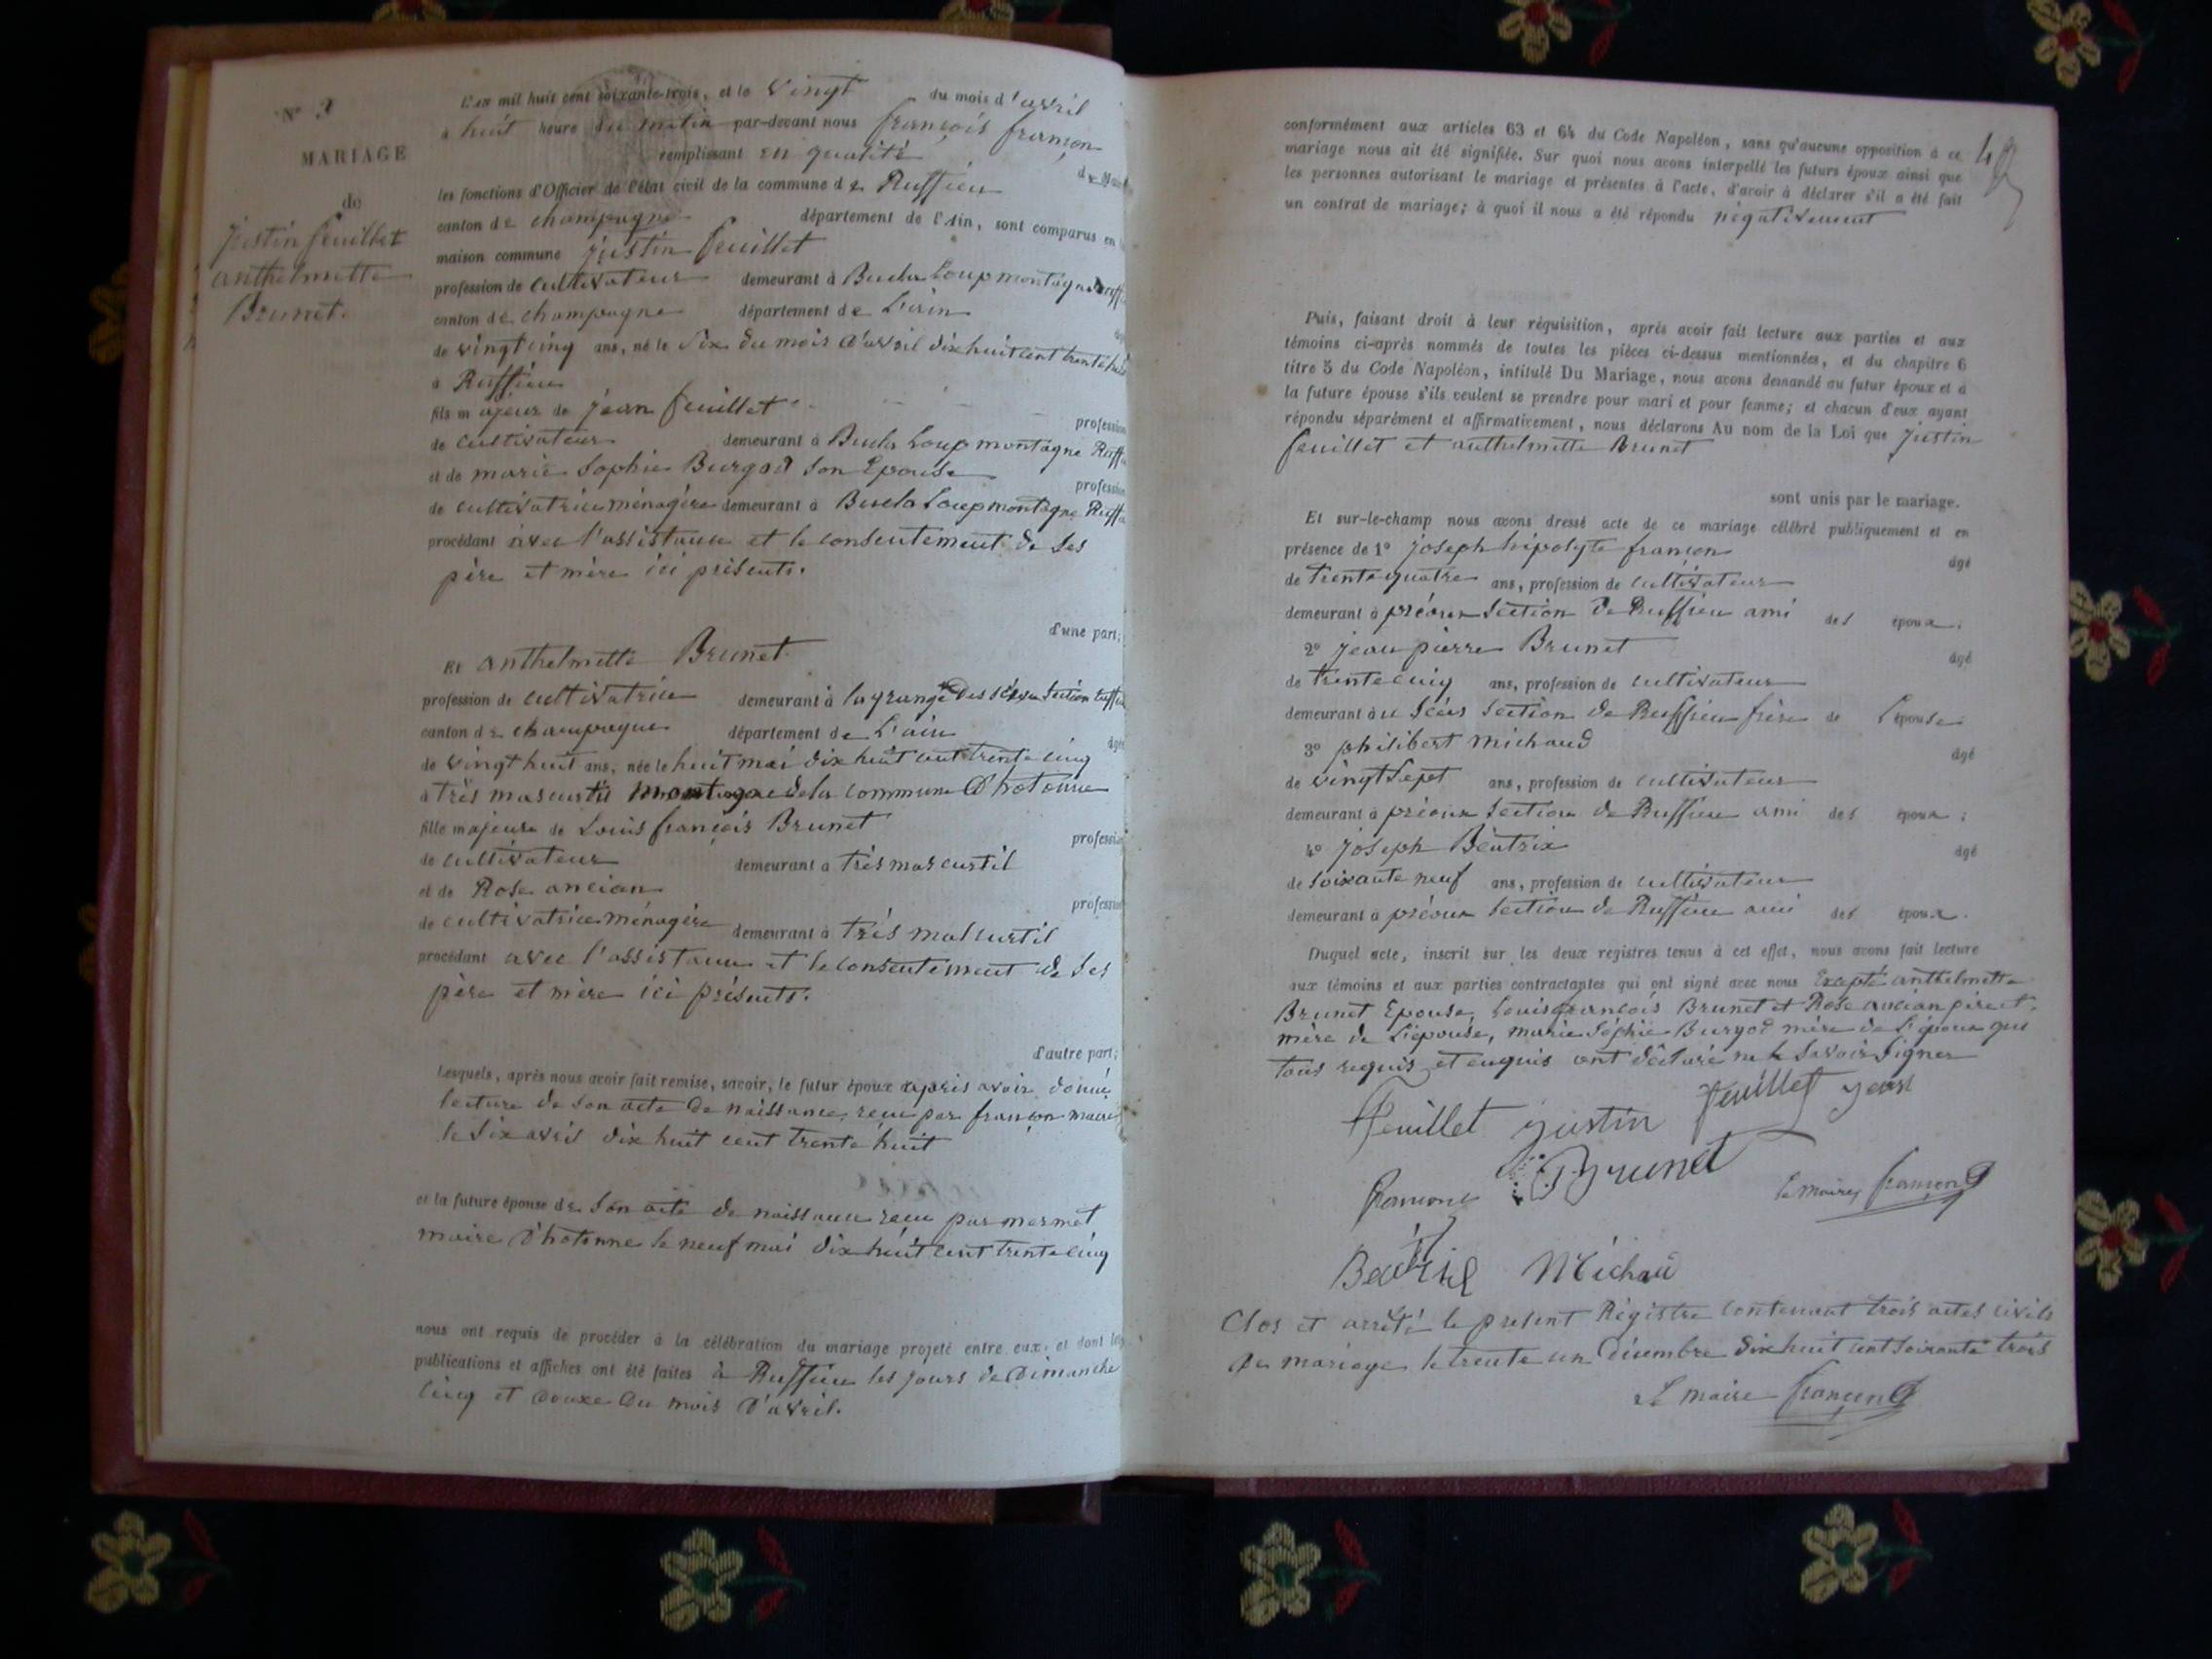 N° 3
MARIAGE
de
justin feuillet
anthelmette
Brunet.
L'an mil huit cent soixante-trois, et le vingt du mois d'avril
à huit heure du matin par-devant nous françois françon
remplissant en qualité de Maire
les fonctions d'Officier de l'état civil de la commune de Ruffieu
canton de champagne département de l'Ain, sont comparus en la
maison commune justin feuillet
profession de cultivateur demeurant à Buela Loup montagne
canton de champagne département de L'ain
de vingt cinq ans, né le Six du mois d'avril dix huit cent trente huit
à Ruffieu
fils majeur de jean feuillet profession
de cultivateur demeurant à Buela Loup montagne Ruff
et de marie Sophie Burgod son Epouse profession
de cultivatrice ménagère demeurant à Buela Loup montagne Ruff
procédant avec l'assistance et le consentement de ses
père et mère ici présents.
d'une part;
Et anthelmette Brunet
profession de cultivatrice demeurant à la grange des section Ruff
canton de champagne département de L'ain âgée
de vingt huit ans, née le huit mai dix huit cent trente cinq
à très mascurtil montagne de la commune d'hotonne
fille majeure de Louis françois Brunet profession
de cultivateur demeurant à très mascurtil
et de Rose ancian profession
de cultivatrice ménagère demeurant à très malcurtil
procédant avec l'assistance et le consentement de ses
père et mère ici présents.
d'autre part;
Lesquels, après nous avoir fait remise, savoir, le futur époux après avoir donné
lecture de son acte de naissance reçu par françon maire
le six avril dix huit cent trente huit
et la future épouse de son acte de naissance reçu par mermet
maire d'hotonne le neuf mai dix huit cent trente cinq
nous ont requis de procéder à la célébration du mariage projeté entre eux, et dont les
publications et affiches ont été faites à Ruffieu les jours de Dimanche
cinq et douze du mois d'avril.
conformément aux articles 63 et 64 du Code Napoléon, sans qu'aucune opposition à ce
mariage nous ait été signifiée. Sur quoi nous avons interpellé les futurs époux ainsi que
les personnes autorisant le mariage et présentes à l'acte, d'avoir à déclarer s'il a été fait
un contrat de mariage; à quoi il nous a été répondu négativement
Puis, faisant droit à leur réquisition, après avoir fait lecture aux parties et aux
témoins ci-après nommés de toutes les pièces ci-dessus mentionnées, et du chapitre 6
titre 5 du Code Napoléon, intitulé Du Mariage, nous avons demandé au futur époux et à
la future épouse s'ils veulent se prendre pour mari et pour femme; et chacun d'eux ayant
répondu séparément et affirmativement, nous déclarons Au nom de la Loi que justin
feuillet et anthelmette Brunet
sont unis par le mariage.
Et sur-le-champ nous avons dressé acte de ce mariage célébré publiquement et en
présence de 1° joseph hipolyte françon âgé
de trente quatre ans, profession de cultivateur
demeurant à section de Ruffieu ami des époux;
2° jean pierre Brunet âgé
de trente cinq ans, profession de cultivateur
demeurant à section de Ruffieu frère de L'épouse
3° philibert michaud âgé
de vingt sept ans, profession de cultivateur
demeurant à section de Ruffieu ami des époux;
4° joseph Béatrix âgé
de soixante neuf ans, profession de cultivateur
demeurant à section de Ruffieu ami des époux.
Duquel acte, inscrit sur les deux registres tenus à cet effet, nous avons fait lecture
aux témoins et aux parties contractantes qui ont signé avec nous Excepté anthelmette
Brunet Epouse, Louis françois Brunet et Rose ancian père et
mère de L'épouse, marie Sophie Burgod mère de L'époux qui
tous requis et enquis ont déclaré ne le savoir signer
feuillet justin feuillet jean
françon Brunet le maire françon
Beatrix Michau
Clos et arrêté le present Régistre contenant trois actes civils
de mariage le trente un décembre dix huit cent soixante trois
Le maire françon